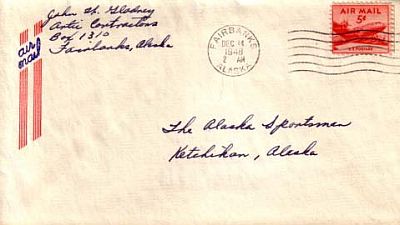 John H. Gladney
Artic Contractors
Box 1310
Fairbanks, Alaska
air
mail
FAIRBANKS
DEC 14
1948
2 AM
ALASKA
AIR MAIL
5¢
U.S. POSTAGE
The Alaska Sportsman
Ketchikan, Alaska